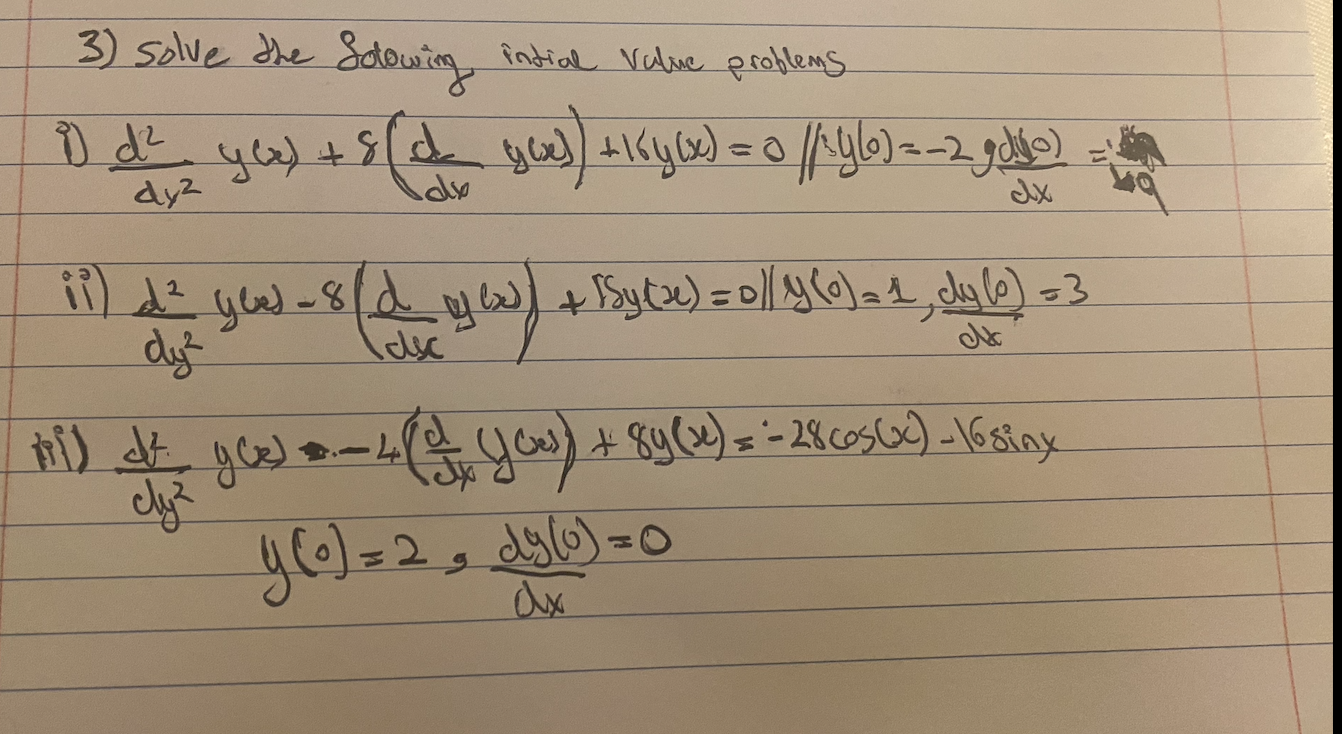 3) Solve the folowing intial value problems
i) d²/dx² y(x) + 8(d/dx y(x)) + 16y(x) = 0 // y(0) = -2, dy(0)/dx =
ii) d²/dy² y(x) - 8(d/dx y(x)) + 15y(x) = 0 // y(0) = 1, dy(0)/dx = 3
iii) d²/dy² y(x) - 4(d/dx y(x)) + 8y(x) = -28cos(x) - 16sinx
y(0) = 2, dy(0)/dx = 0